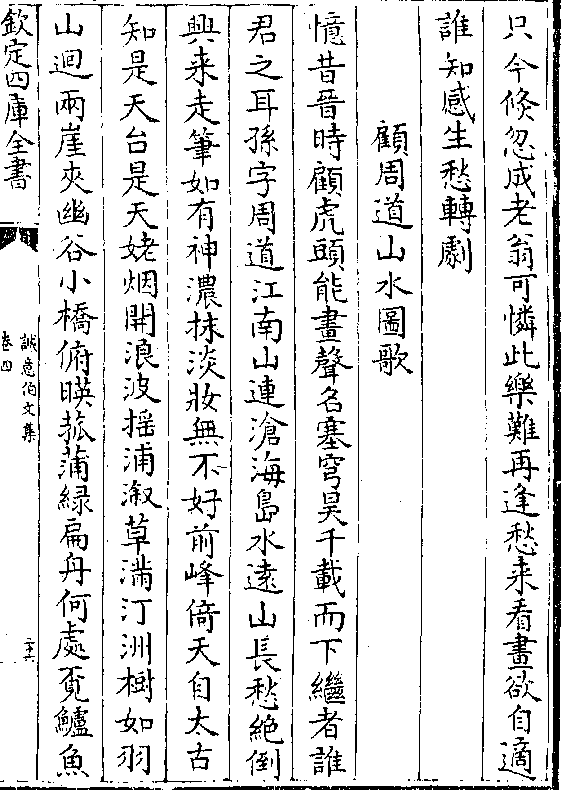 只今倐忽成老翁可憐此樂難再逢愁来看畫欲自適
誰知感生愁轉劇
顧周道山水圖歌
憶昔晉時顧虎頭能畫聲名塞穹昊千載而下繼者誰
君之耳孫字周道江南山連滄海島水逺山長愁絶倒
興来走筆如有神濃抹淡妝無不好前峰倚天自太古
知是天台是天姥烟開浪波揺浦溆草滿汀洲樹如羽
山迴兩崖夾幽谷小橋俯暎菰蒲緑扁舟何處覔鱸魚
欽定四庫全書
誠意伯文集
卷四
二十六